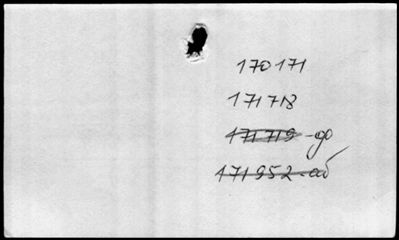 170171
171718
171719-др
171952-об